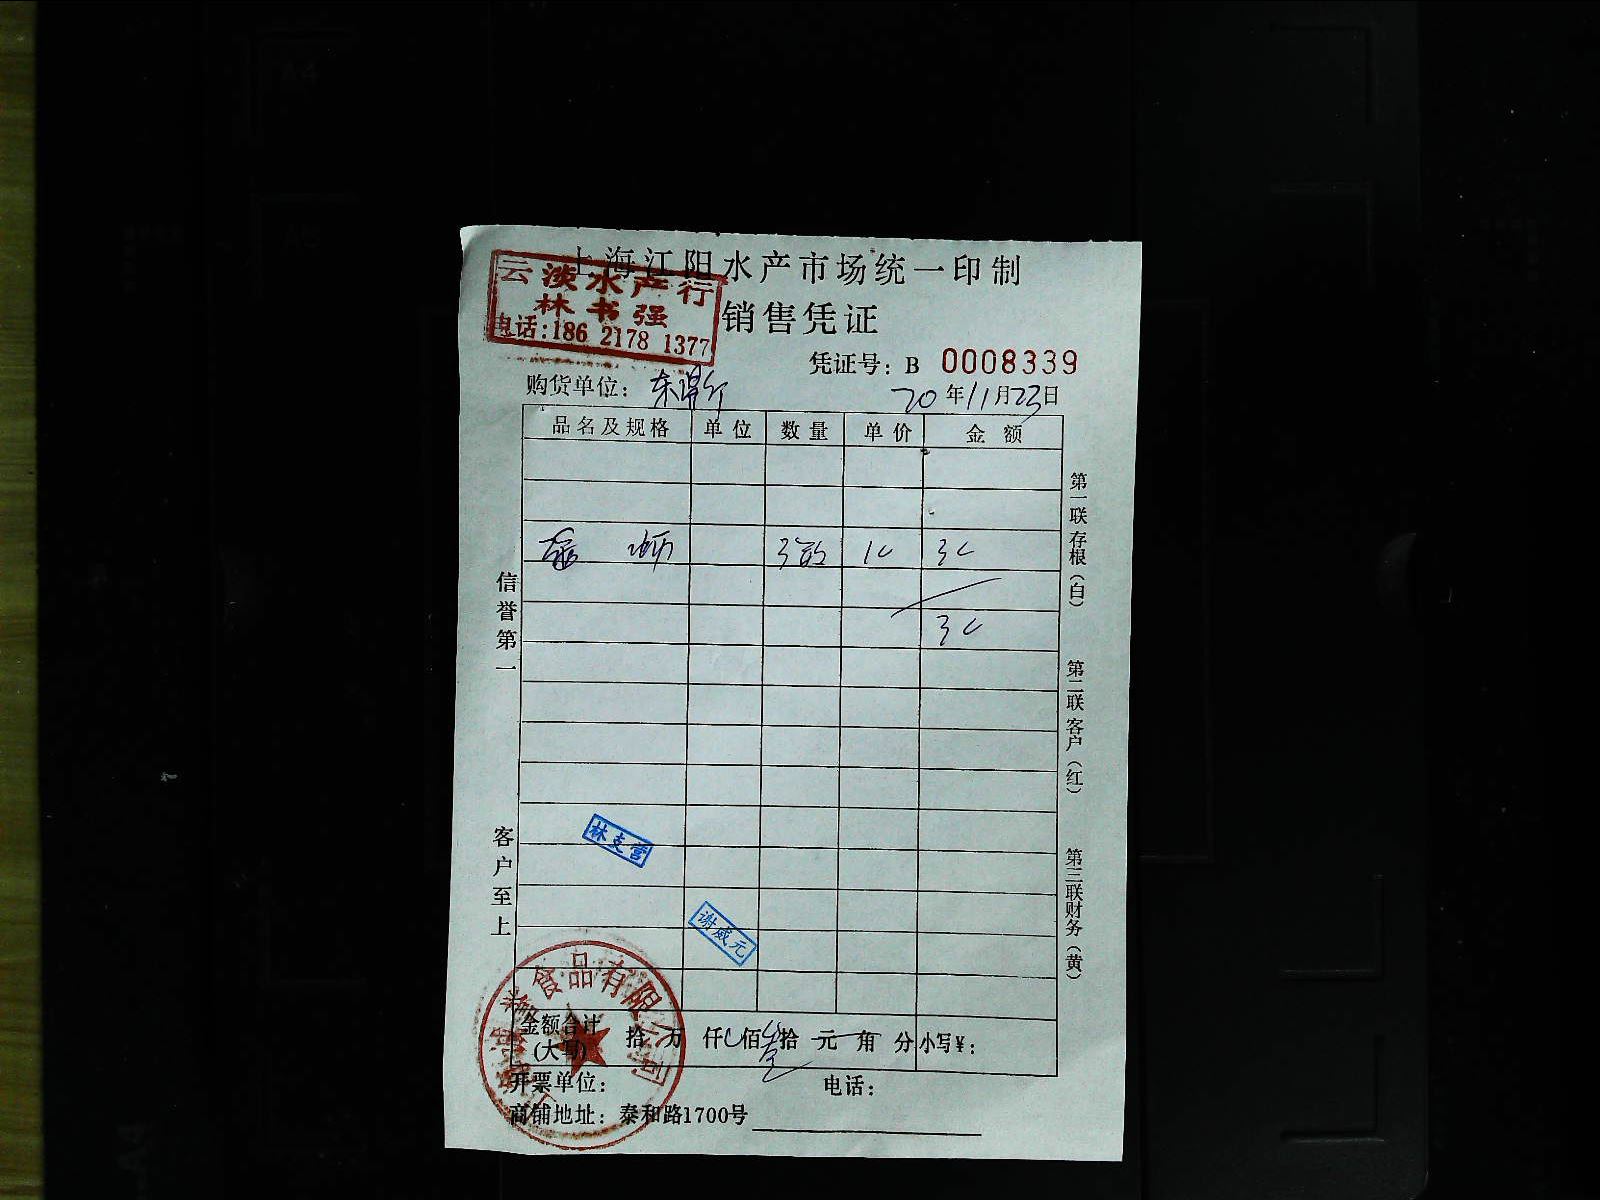 上海江阳水产市场统一印制
云淡水产行
林书强
电话:186 2178 1377
销售凭证
凭证号: B 0008339
购货单位:
20年11月23日
品名及规格 单位 数量 单价 金额
信誉第一
客户至上
第一联存根(白)
第二联客户(红)
第三联财务(黄)
林支营
谢威元
食品有限公司
金额合计(大写) 拾 万 仟 佰叁拾 元 角 分 小写¥:
开票单位: 电话:
商铺地址: 泰和路1700号